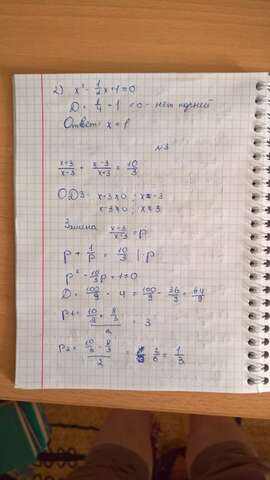 2) x² - 1/2 x + 1 = 0
D = 1/4 - 1 < 0 - нет корней
Ответ: x = 1
№3
(x+3)/(x-3) + (x-3)/(x+3) = 10/3
ОДЗ: x+3≠0; x≠-3
x-3≠0; x≠3
Замена (x+3)/(x-3) = p
p + 1/p = 10/3 | · p
p² - 10/3 p + 1 = 0
D = 100/9 - 4 = 100/9 - 36/9 = 64/9
p₁ = (10/3 + 8/3)/2 = 3
p₂ = (10/3 - 8/3)/2 = 2/6 = 1/3